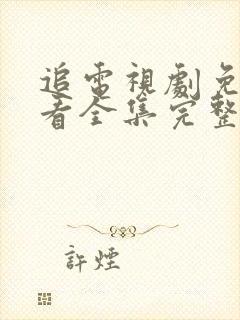 追電視劇免
看全集完整
許煙